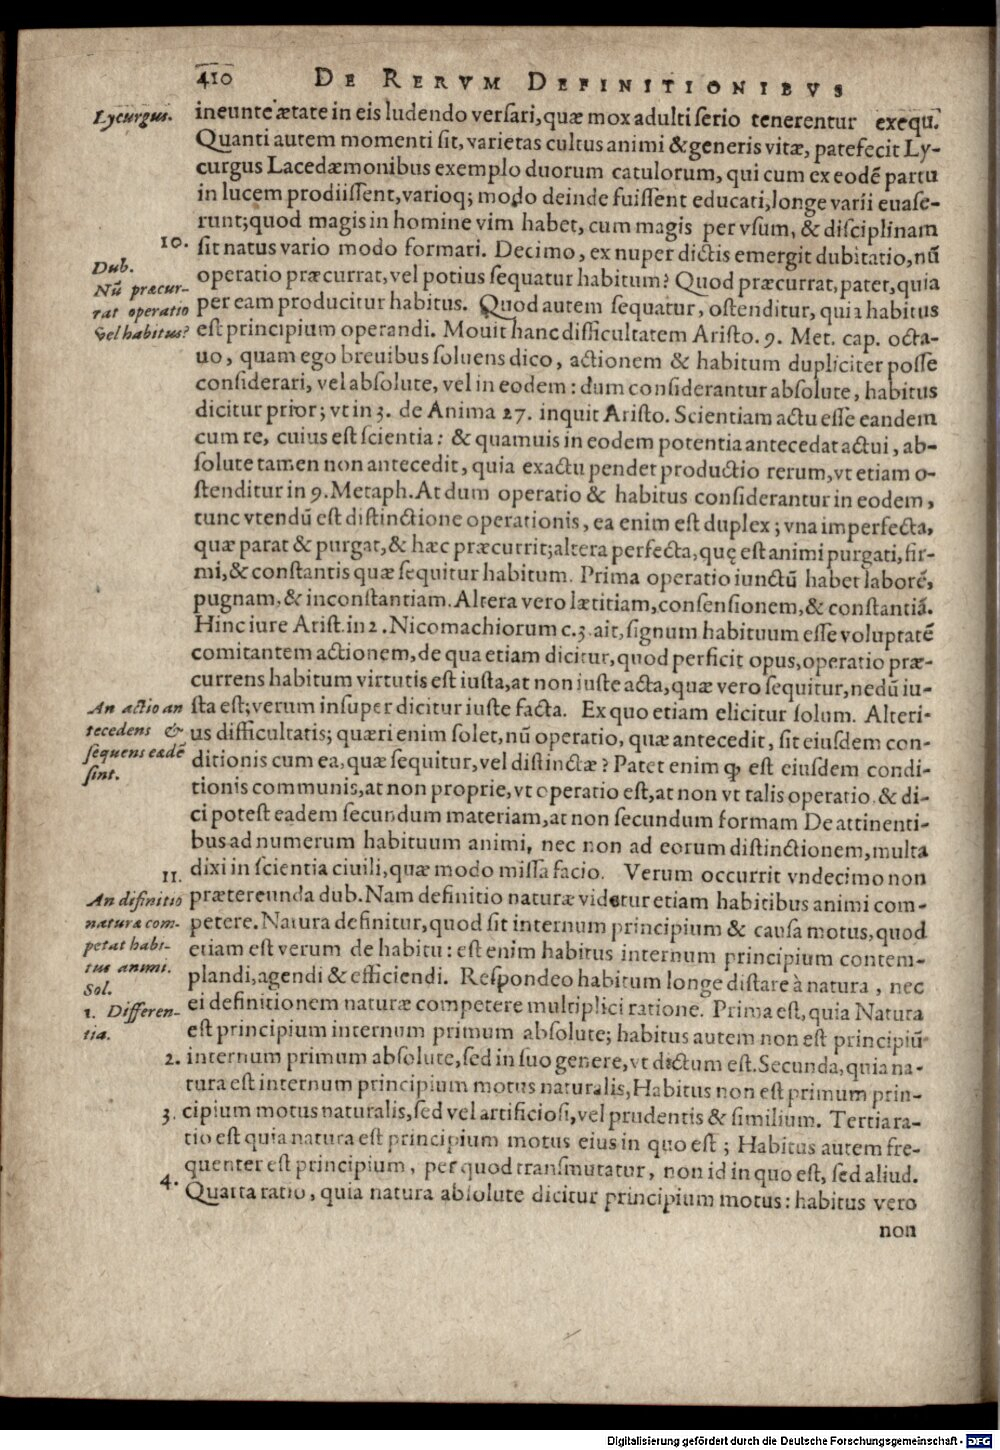 410 DE RERVM DEFINITIONIBVS
Lycurgus.
ineunte ætate in eis ludendo verſari, quæ mox adulti ſerio tenerentur exequi.
Quanti autem momenti ſit, varietas cultus animi & generis vitæ, patefecit Ly-
curgus Lacedæmonibus exemplo duorum catulorum, qui cum ex eodē partu
in lucem prodiiſſent, varioq; modo deinde fuiſſent educati, longe varii euaſe-
runt; quod magis in homine vim habet, cum magis per vſum, & diſciplinam
10.
ſit natus vario modo formari. Decimo, ex nuper dictis emergit dubitatio, nū
Dub.
Nū præcur-
rat operatio
vel habitus?
operatio præcurrat, vel potius ſequatur habitum? Quod præcurrat, patet, quia
per eam producitur habitus. Quod autem ſequatur, oſtenditur, quia habitus
eſt principium operandi. Mouit hanc difficultatem Ariſto. 9. Met. cap. octa-
uo, quam ego breuibus ſoluens dico, actionem & habitum dupliciter poſſe
conſiderari, vel abſolute, vel in eodem: dum conſiderantur abſolute, habitus
dicitur prior; vt in 3. de Anima 27. inquit Ariſto. Scientiam actu eſſe eandem
cum re, cuius eſt ſcientia: & quamuis in eodem potentia antecedat actui, ab-
ſolute tamen non antecedit, quia ex actu pendet productio rerum, vt etiam o-
ſtenditur in 9. Metaph. At dum operatio & habitus conſiderantur in eodem,
tunc vtendū eſt diſtinctione operationis, ea enim eſt duplex; vna imperfecta,
quæ parat & purgat, & hæc præcurrit; altera perfecta, quę eſt animi purgati, fir-
mi, & conſtantis quæ ſequitur habitum. Prima operatio iunctū habet laborē,
pugnam, & inconſtantiam. Altera vero lætitiam, conſenſionem, & conſtantiā.
Hinc iure Ariſt. in 2. Nicomachiorum c. 3. ait, ſignum habituum eſſe voluptatē
comitantem actionem, de qua etiam dicitur, quod perficit opus, operatio præ-
currens habitum virtutis eſt iuſta, at non iuſte acta, quæ vero ſequitur, nedū iu-
An actio an
tecedens &
ſequens eædē
ſint.
ſta eſt; verum inſuper dicitur iuſte facta. Ex quo etiam elicitur ſolum. Alteri-
us difficultatis; quæri enim ſolet, nū operatio, quæ antecedit, ſit eiuſdem con-
ditionis cum ea, quæ ſequitur, vel diſtinctæ? Patet enim ꝙ eſt eiuſdem condi-
tionis communis, at non proprie, vt operatio eſt, at non vt talis operatio. & di-
ci poteſt eadem ſecundum materiam, at non ſecundum formam De attinenti-
bus ad numerum habituum animi, nec non ad eorum diſtinctionem, multa
11.
dixi in ſcientia ciuili, quæ modo miſſa facio. Verum occurrit vndecimo non
An difinitio
naturæ com-
petat habi-
tus animi.
Sol.
1. Differen-
tia.
prætereunda dub. Nam definitio naturæ videtur etiam habitibus animi com-
petere. Natura definitur, quod ſit internum principium & cauſa motus, quod
etiam eſt verum de habitu: eſt enim habitus internum principium contem-
plandi, agendi & efficiendi. Reſpondeo habitum longe diſtare à natura, nec
ei definitionem naturæ competere multiplici ratione. Prima eſt, quia Natura
eſt principium internum primum abſolute; habitus autem non eſt principiū
2. internum primum abſolute, ſed in ſuo genere, vt dictum eſt. Secunda, quia na-
tura eſt internum principium motus naturalis, Habitus non eſt primum prin-
3. cipium motus naturalis, ſed vel artificioſi, vel prudentis & ſimilium. Tertia ra-
tio eſt quia natura eſt principium motus eius in quo eſt; Habitus autem fre-
quenter eſt principium, per quod tranſmutatur, non id in quo eſt, ſed aliud.
4. Quarta ratio, quia natura abſolute dicitur principium motus: habitus vero
non
Digitalisierung gefördert durch die Deutsche Forschungsgemeinschaft - DFG